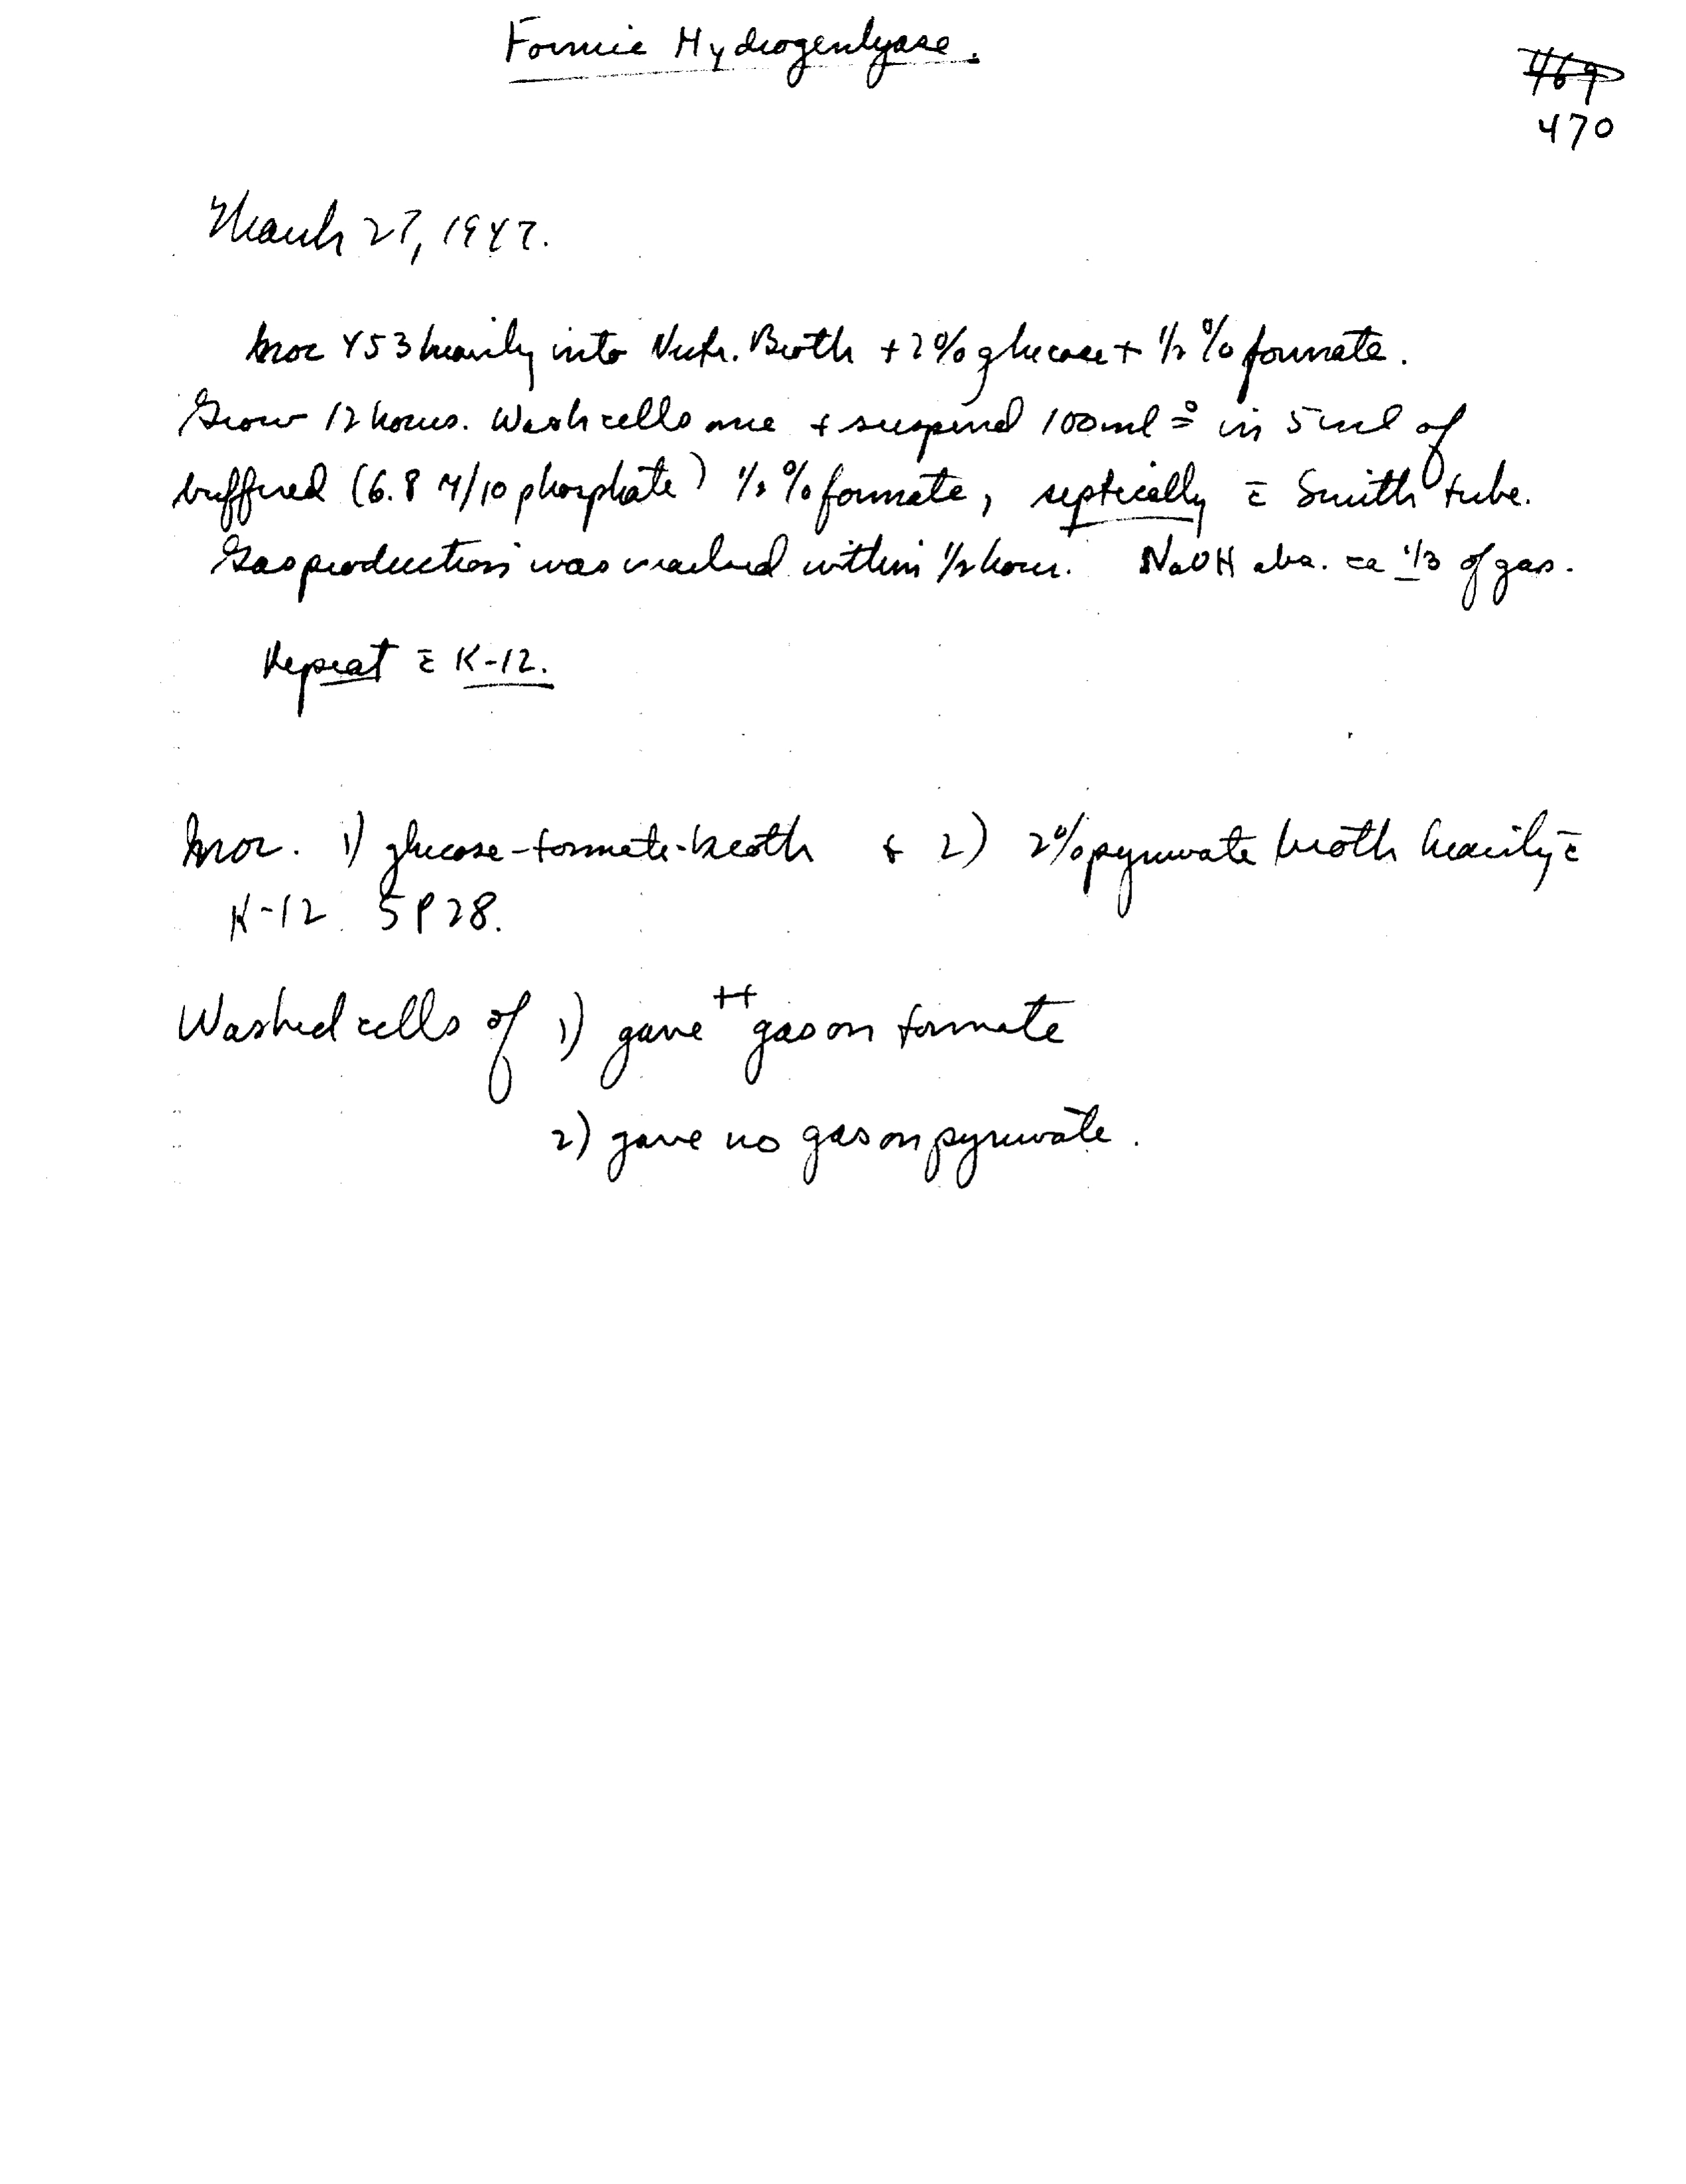 Formic Hydrogenlyase.
469
470
March 27, 1947.
Inoc Y53 heavily into Nutr. Broth + 2% glucose + 1/2 % formate.
Grow 12 hours. Wash cells once + suspend 100 ml ≘ in 5 ml of
buffered (6.8 M/10 phosphate) 1/2 % formate, septically c̄ Smith tube.
Gas production was marked within 1/2 hour. NaOH abs. ca 1/3 of gas.
Repeat c̄ K-12.
Inoc. 1) glucose-formate-broth + 2) 2% pyruvate broth heavily c̄
K-12 5P28.
Washed cells of 1) gave ++ gas on formate
2) gave no gas on pyruvate.